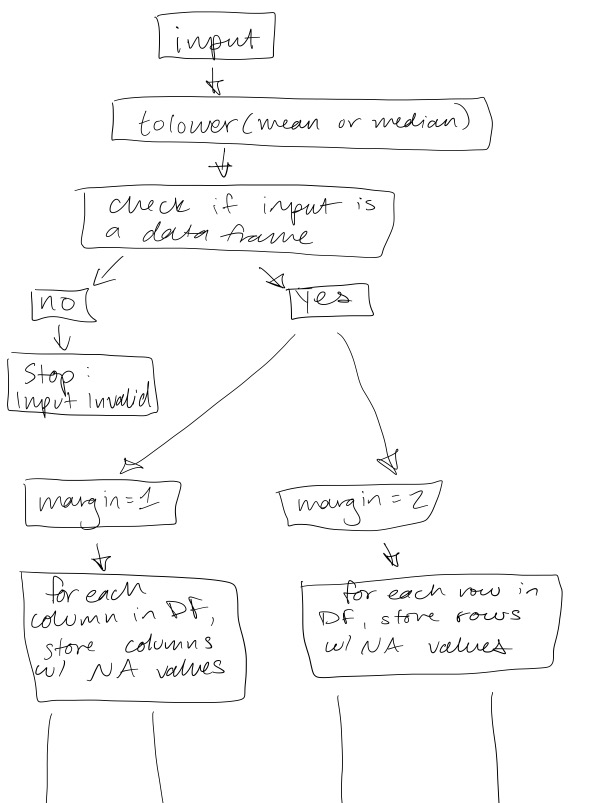 input
tolower(mean or median)
check if input is
a data frame
no
yes
Stop:
input invalid
margin=1
margin=2
for each
column in DF,
store columns
w/ NA values
for each row in
DF, store rows
w/ NA values